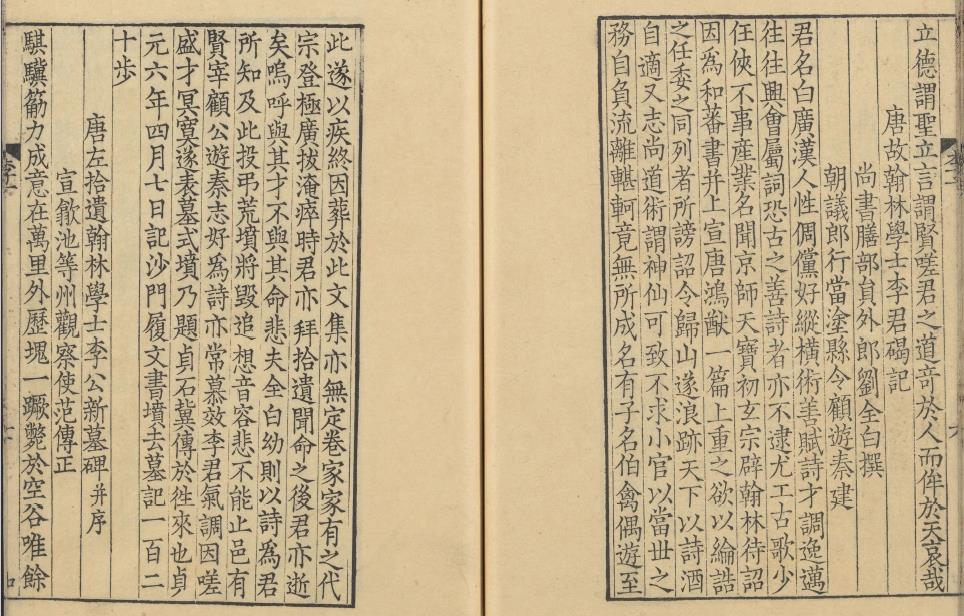 立德謂聖立言謂賢嗟君之道竒於人而侔於天哀哉
唐故翰林學士李君碣記
尚書膳部貟外郎劉全白撰
朝議郎行當塗縣令顧遊秦建
君名白廣漢人性倜儻好縱橫術善賦詩才調逸邁
往往興會屬詞恐古之善詩者亦不逮尤工古歌少
任俠不事産業名聞京師天寶初玄宗辟翰林待詔
因為和蕃書并上宣唐鴻猷一篇上重之欲以綸誥
之任委之同列者所謗詔令歸山遂浪跡天下以詩酒
自適又志尚道術謂神仙可致不求小官以當丗之
務自負流離轗軻竟無所成名有子名伯禽偶遊至
此遂以疾終因葬於此文集亦無定卷家家有之代
宗登極廣拔淹瘁時君亦拜拾遺聞命之後君亦逝
矣嗚呼與其才不與其命悲夫全白幼則以詩為君
所知及此投弔荒墳將毀追想音容悲不能止邑有
賢宰顧公遊秦志好爲詩亦常慕效李君氣調因嗟
盛才冥寞遂表墓式墳乃題貞石冀傳於徃來也貞
元六年四月七日記沙門履文書墳去墓記一百二
十歩
唐左拾遺翰林學士李公新墓碑并序
宣歙池等州觀察使范傳正
騏驥筋力成意在萬里外歷塊一蹶斃於空谷唯餘